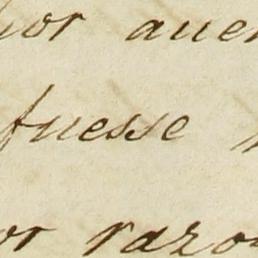 por auer
fuesse
or razo